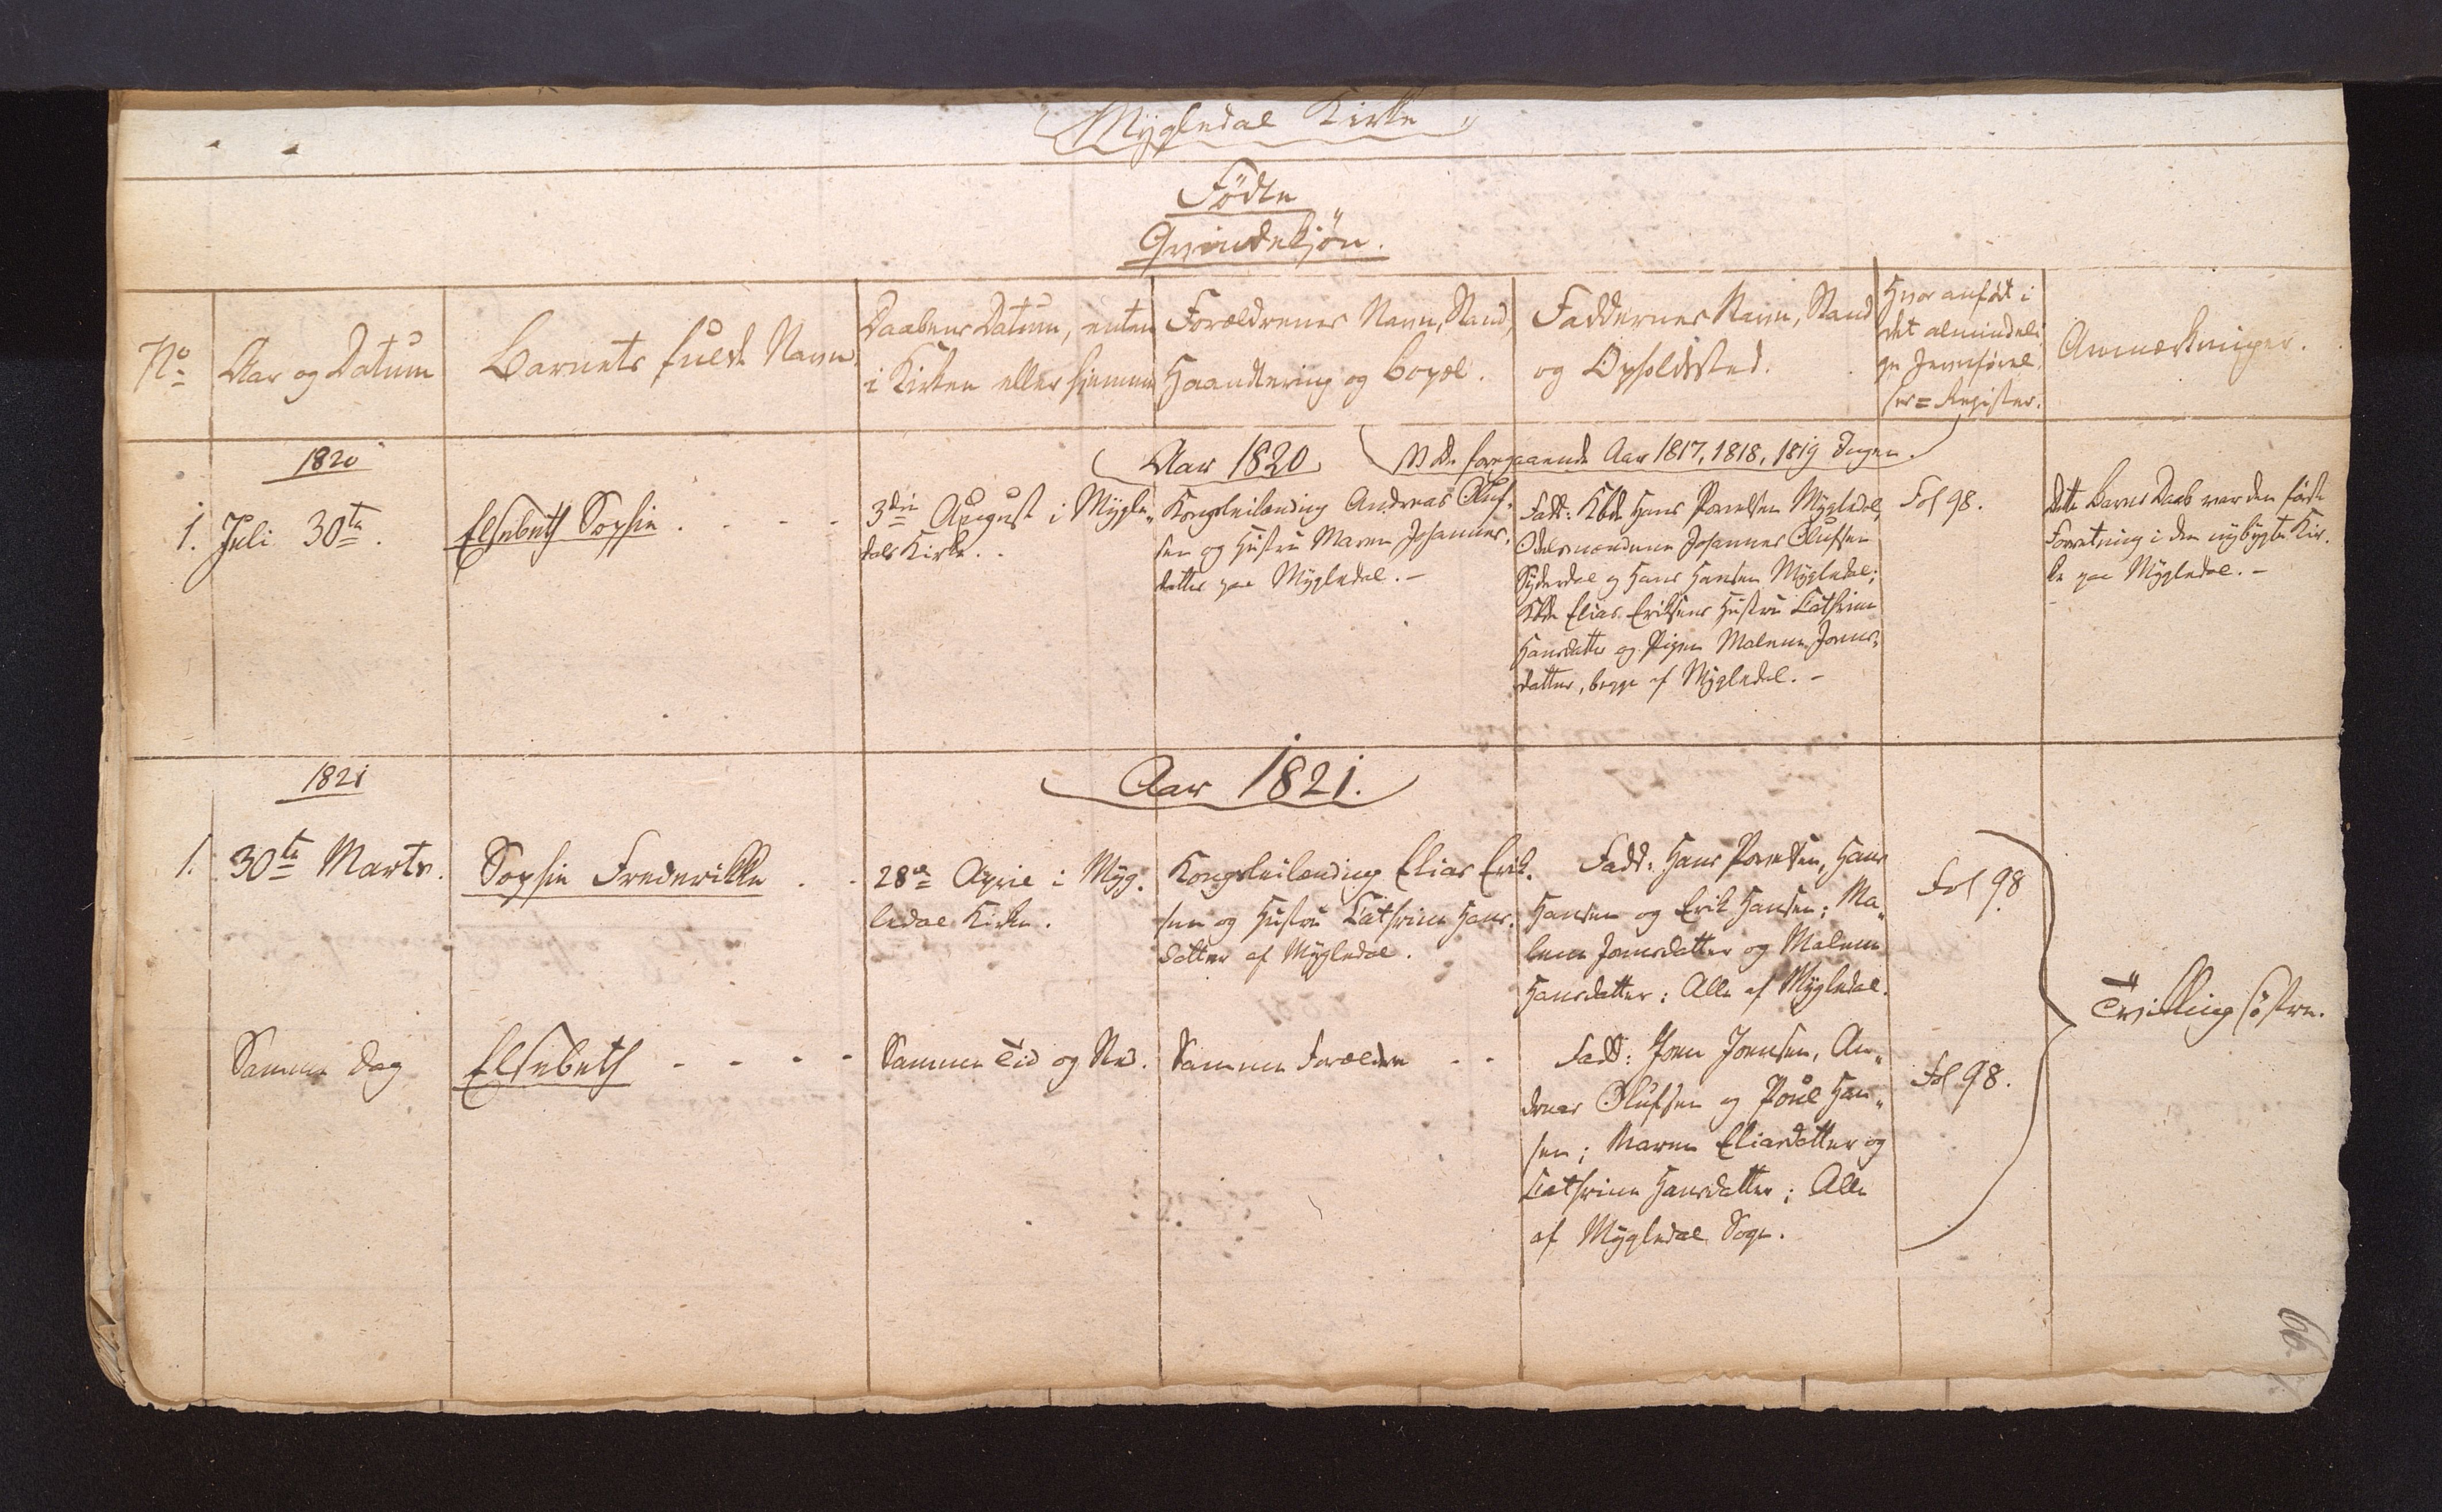 Mygledal Kirke
Fødte
Qvindekjøn.
No
Aar og Datum
Barnets fulde Navn
Daabens Datum, enten
i Kirken eller hjemme
Forældrenes Navn, Stand,
Haandtering og bopæl.
Faddernes Navn, Stand
og Opholdsted.
Hvor anført i
det almindeli
ge Jevnførel
ses=Register.
Anmærkninger.
1820
Aar 1820
de foregaaende Aar 1817, 1818, 1819 Ingen.
1. Juli 30te.
Elsebeth Sophie
3die August i Mygle„
dals Kirke.
Kongsleilænding Andreas Oluf„
sen og Hustru Maren Johannes„
datter paa Mygledal.-
Fadd: Kbd. Hans Poulsen Mygledal,
Odelsmændene Johannes Olufsen
Syderdal og Hans Hansen Mygledal;
Kbde Elias Eriksens Hustru Cathrine
Hansdatter og Pigen Malene Joens„
datter, begge af Mygledal.-
Fol 98.
Dette Barns Daab var den første
Forretning i den nybygte Kir„
ke paa Mygledal.-
1821
Aar 1821.
1. 30te Marts.
Sophie Frederikke
28de April i Myg„
ledal Kirke.
Kongsleilænding Elias Erik„
sen og Hustru Cathrine Hans„
datter af Mygledal.
Fadd: Hans Poulsen, Hans
Hansen og Erik Hansen; Ma„
lene Joensdatter og Malene
Hansdatter; Alle af Mygledal.
Fol 98
Tvillingsøstre.
Samme Dag
Elsebeth
Samme Tid og Sted.
Samme Forældre
Fadd: Joen Joensen, An„
dreas Olufsen og Poul Han„
sen; Maren Eliasdatter og
Cathrine Hansdatter; Alle
af Mygledal Sogn.
Fol 98.
66